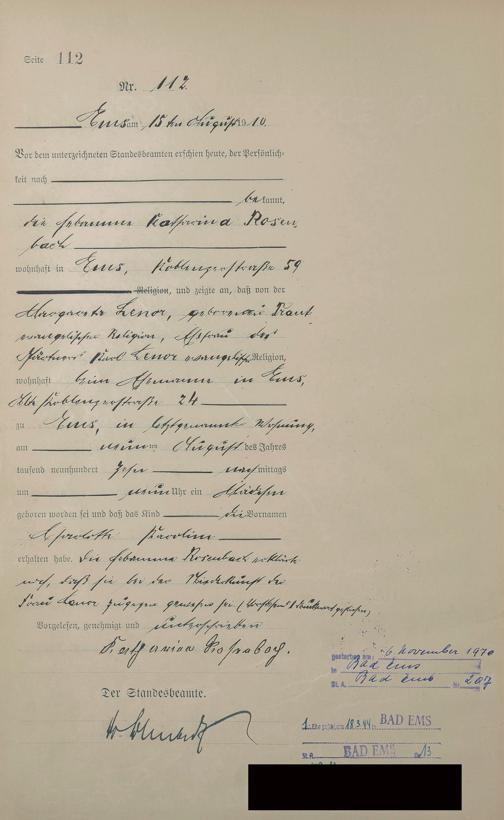 Seite 112
Nr. 112.
Ems am 15ten August 1910.
Vor dem unterzeichneten Standesbeamten erschien heute, der Persönlich-
keit nach
bekannt,
die Hebamme Katharina Rosen
bach
wohnhaft in Ems, Koblenzerstraße 59
Religion, und zeigte an, daß von der
Margareta Lenor, geborenen
evangelischer Religion, Ehefrau des
Karl Lenor evangelischer Religion,
wohnhaft beim Ehemann in Ems,
Alte Koblenzerstraße 24
zu Ems, in letztgenannter Wohnung,
am neunten August des Jahres
tausend neunhundert zehn nachmittags
um neun Uhr ein Mädchen
geboren worden sei und daß das Kind die Vornamen
Charlotte Karoline
erhalten habe. Die Hebamme Rosenbach erklärte
noch, daß sie bei der Niederkunft der
Frau Lenor zugegen gewesen sei.
Vorgelesen, genehmigt und unterschrieben
Katharina Rosenbach.
Der Standesbeamte.
gestorben am: 6. November 1970
in Bad Ems
St. A. Bad Ems Nr. 207
1. 18.3.44 in BAD EMS
St. A. BAD EMS 13